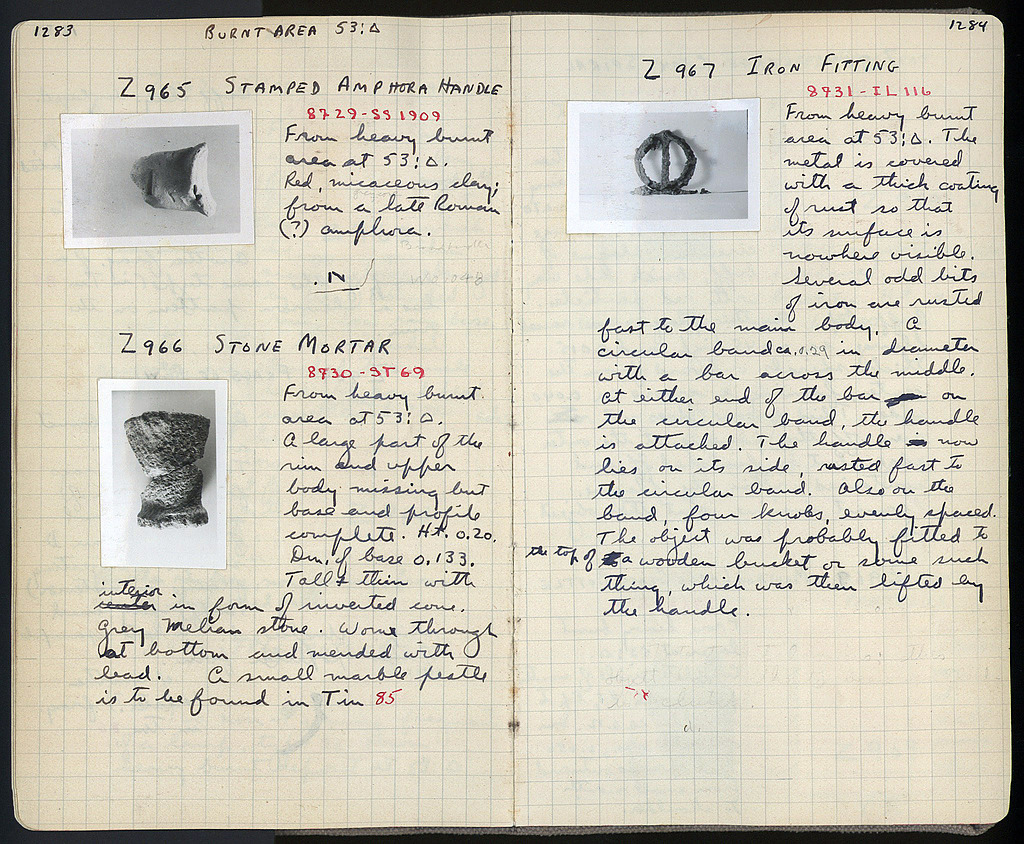 1283
BURNT AREA 53:Δ
Z 965 STAMPED AMPHORA HANDLE
8729-SS 1909
From heavy burnt
area at 53:Δ.
Red, micaceous clay;
from a late Roman
(?) amphora.
.N
Z 966 STONE MORTAR
8730-ST 69
From heavy burnt
area at 53:Δ.
A large part of the
rim and upper
body missing but
base and profile
complete. Ht. 0.20.
Dm. of base 0.133.
Tall & thin with
interior
in form of inverted cone.
Grey Melian stone. Worn through
at bottom and mended with
lead. A small marble pestle
is to be found in Tin 85
1284
Z 967 IRON FITTING
8731-IL 116
From heavy burnt
area at 53:Δ. The
metal is covered
with a thick coating
of rust so that
its surface is
nowhere visible.
Several odd bits
of iron are rusted
fast to the main body. A
circular band ca. 0.29 in diameter
with a bar across the middle.
At either end of the bar on
the circular band, the handle
is attached. The handle now
lies on its side, rusted fast to
the circular band. Also on the
band, four knobs, evenly spaced.
The object was probably fitted to
the top of a wooden bucket or some such
thing, which was then lifted by
the handle.